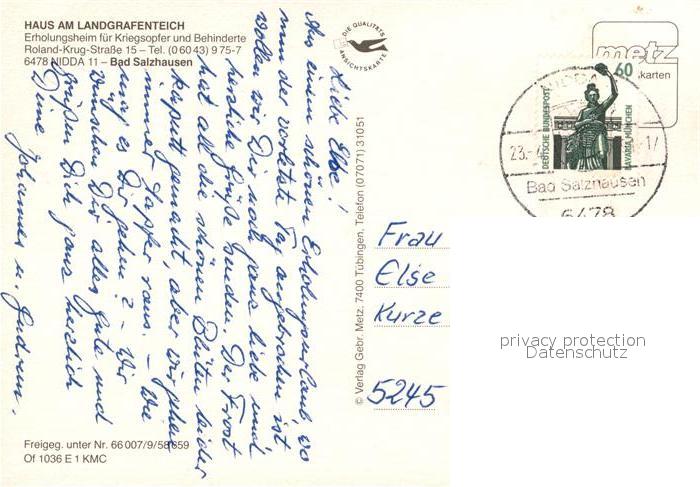 HAUS AM LANDGRAFENTEICH
Erholungsheim für Kriegsopfer und Behinderte
Roland-Krug-Straße 15 – Tel. (0 60 43) 9 75-7
6478 NIDDA 11 – Bad Salzhausen
DIE QUALITÄTS
ANSICHTSKARTE
metz
karten
60
DEUTSCHE BUNDESPOST
BAVARIA MÜNCHEN
NIDDA
23.-
17
Bad Salzhausen
6478
Liebe Else!
Aus einem schönen Erholungsurlaub, wo
nun der vorletzte Tag angebrochen ist
wollen wir Dir noch ganz liebe und
herzliche Grüße senden. Der Frost
hat all die schönen Blüten leider
kaputt gemacht, aber wir gehen
immer tapfer raus. – Wie
mag es Dir gehen? – Wir
wünschen Dir alles Gute und
grüßen Dich ganz herzlich
Deine
Johannes u. Gudrun.
© Verlag Gebr. Metz, 7400 Tübingen, Telefon (07071) 31051
Frau
Else
Kurze
5245
privacy protection
Datenschutz
Freigeg. unter Nr. 66 007/9/58859
Of 1036 E 1 KMC